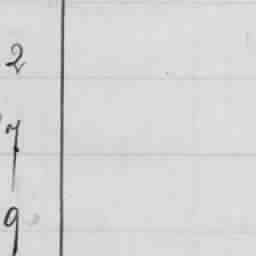 2
7
9